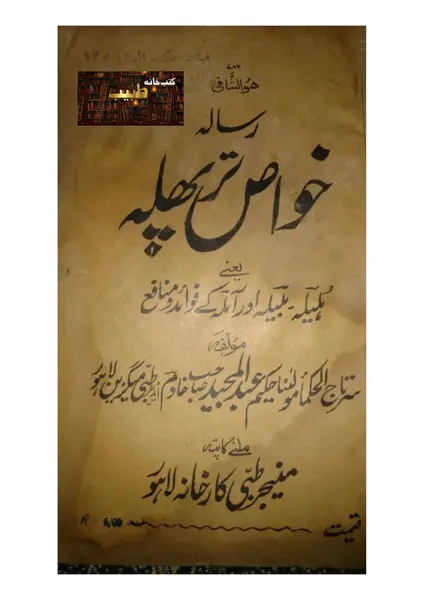 ۷۸۶
ھوالشافی
کتب خانہ
طبیب
رسالہ
خواص تر پھلہ
یعنے
ہلیلہ ۔ بلیلہ اور آملہ کے فوائد و منافع
مؤلفہ
سرتاج الحکمأ مولٰنا حکیم عبدالمجید صاحب خادم طبّی میگزین لاہور
ملنے کا پتہ
منیجر طبّی کارخانہ لاہور
قیمت